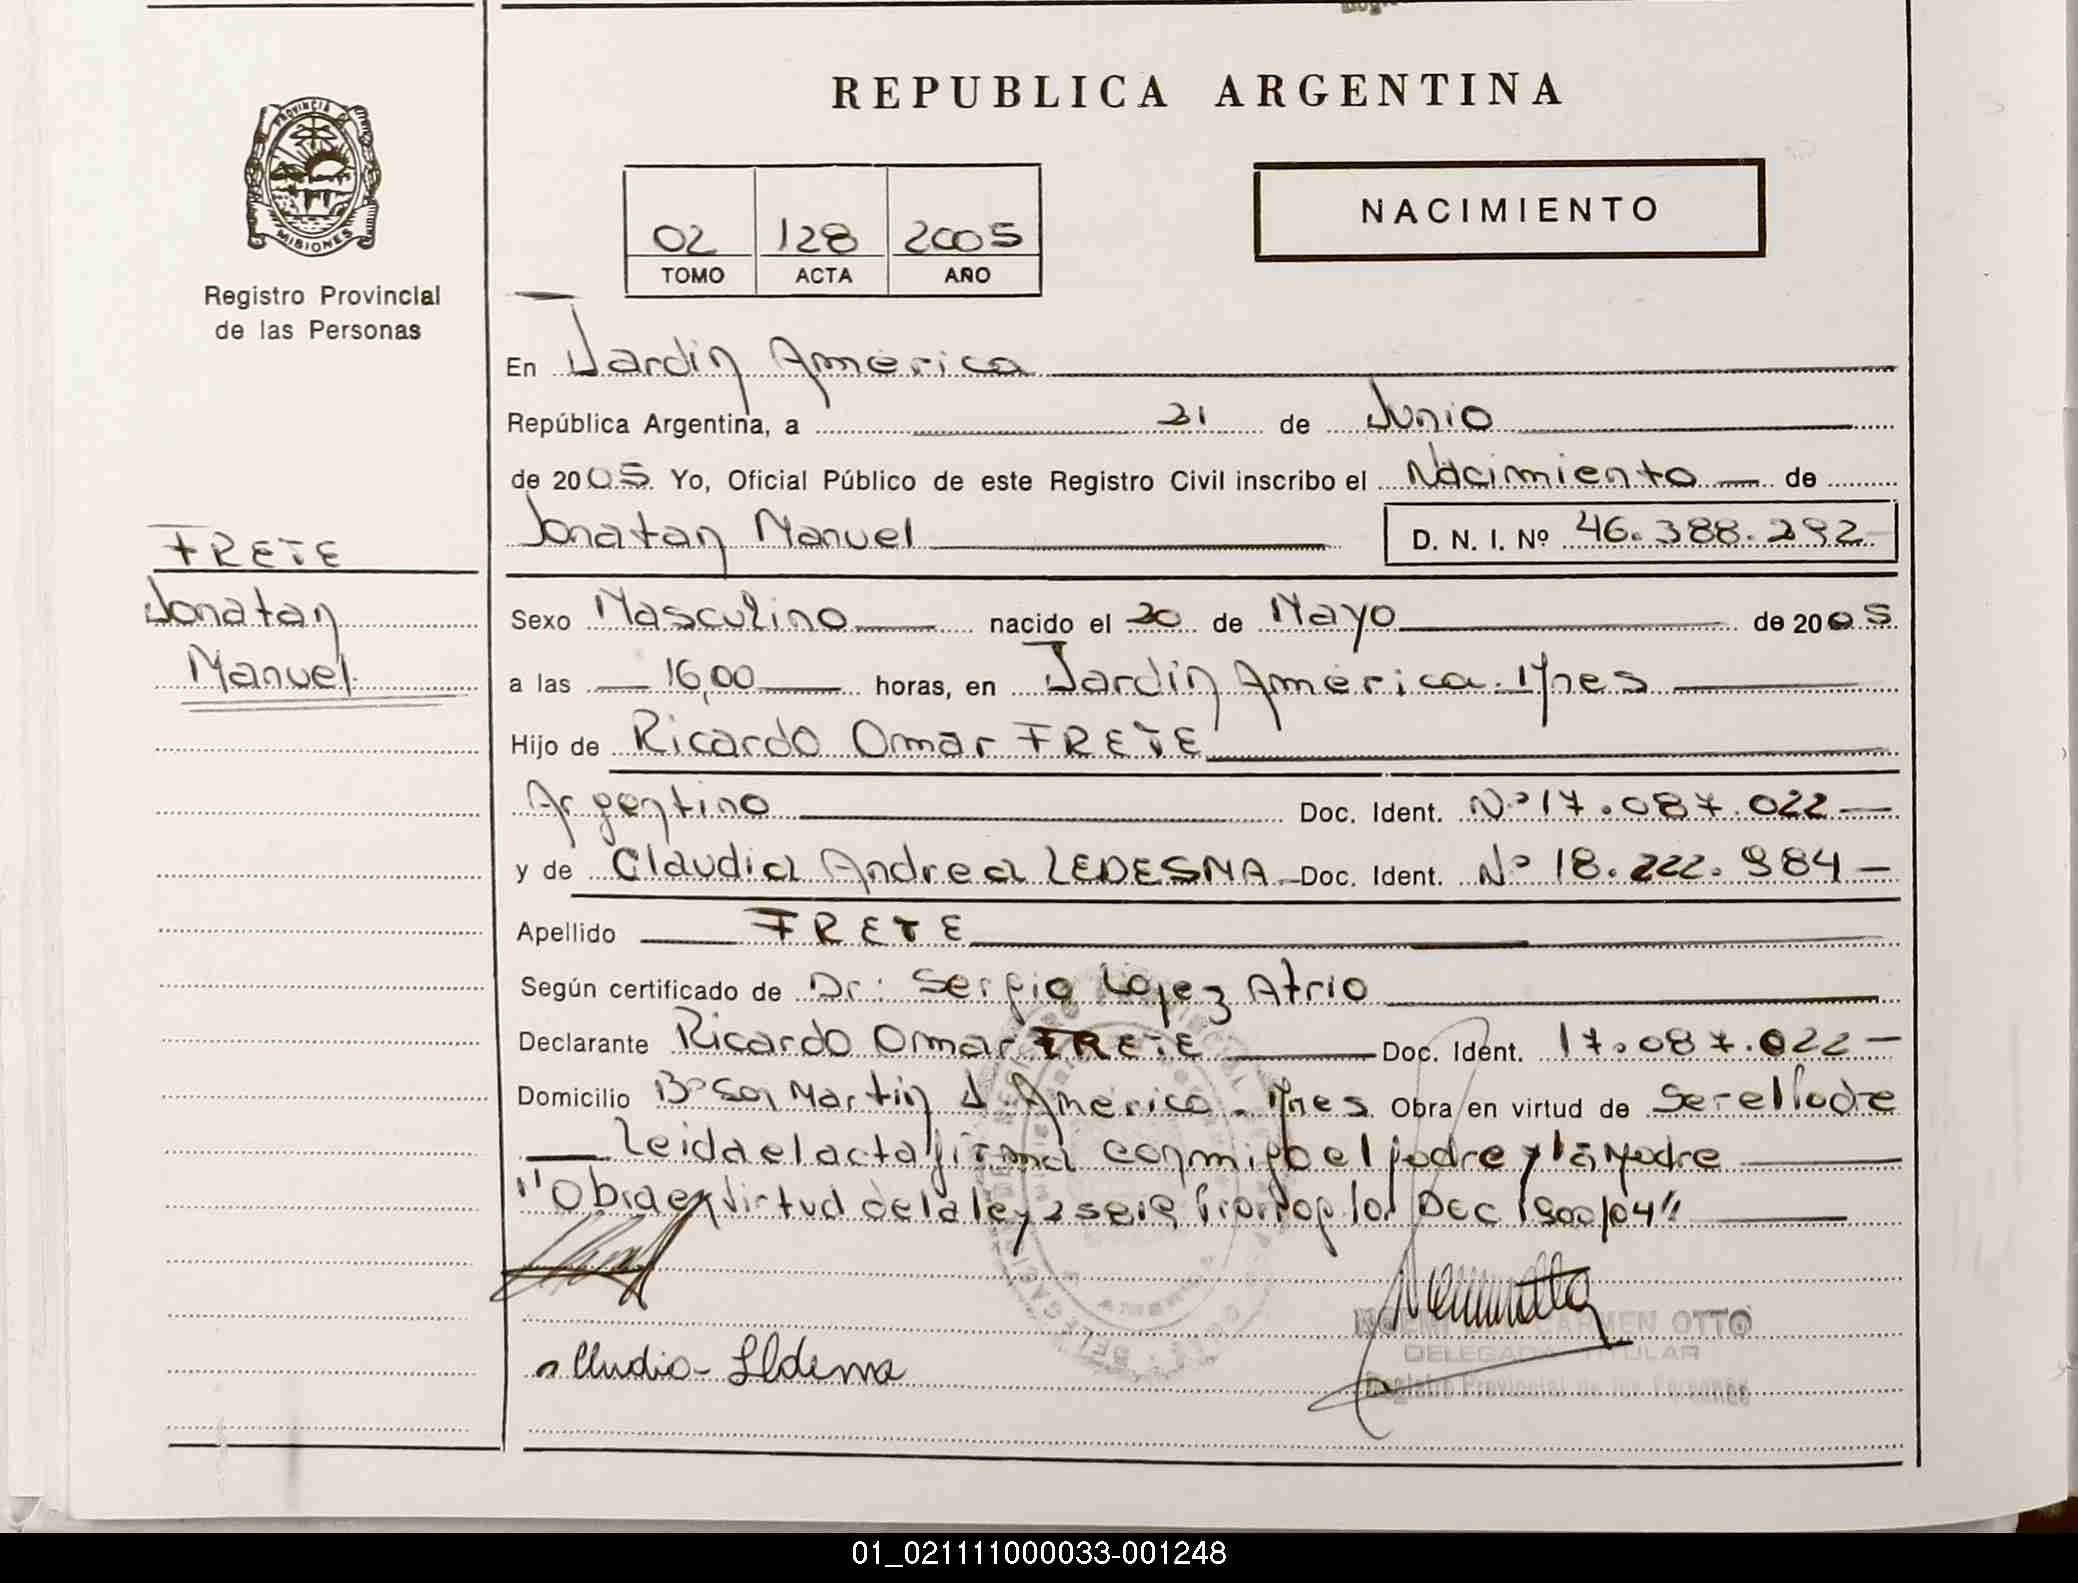 REPUBLICA ARGENTINA
PROVINCIA DE
MISIONES
Registro Provincial
de las Personas
02 128 2005
TOMO ACTA AÑO
NACIMIENTO
En Jardín América
República Argentina, a 21 de Junio
de 2005 Yo, Oficial Público de este Registro Civil inscribo el Nacimiento de
Jonatan Manuel D. N. I. Nº 46.388.292
FRETE
Jonatan
Manuel
Sexo Masculino nacido el 20 de Mayo de 2005
a las 16,00 horas, en Jardín América. Mnes
Hijo de Ricardo Omar FRETE
Argentino Doc. Ident. Nº 17.087.022
y de Claudia Andrea LEDESMA Doc. Ident. Nº 18.222.984
Apellido FRETE
Según certificado de Dr: Sergio López Atrio
Declarante Ricardo Omar FRETE Doc. Ident. 17.087.022
Domicilio Bº San Martín J América. Mnes Obra en virtud de Ser el Padre
Leida el acta firma conmigo el padre y la Madre
"Obra en virtud de la ley Dec 1900/04"
Claudia Ledesma
NOEMI DEL CARMEN OTTO
DELEGADA TITULAR
Registro Provincial de las Personas
01_021111000033-001248